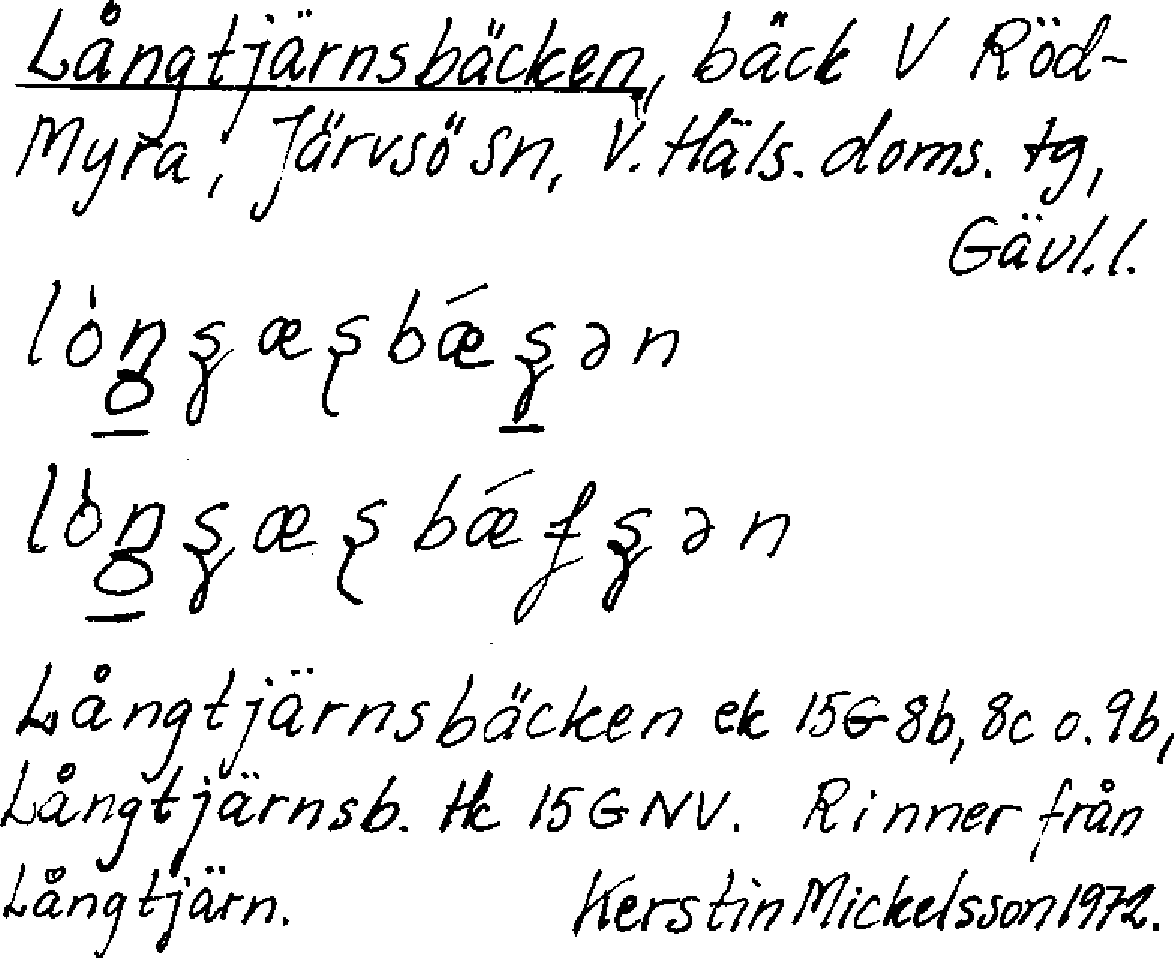 Långtjärnsbäcken, bäck V Röd-
Myra, Järvsö sn, V. Häls. doms. tg,
Gävl.l.
Långtjärnsbäcken ek 15G8b, 8c o. 9b,
Långtjärnsb. tk 15GNV. Rinner från
Långtjärn. Kerstin Mickelsson 1972.